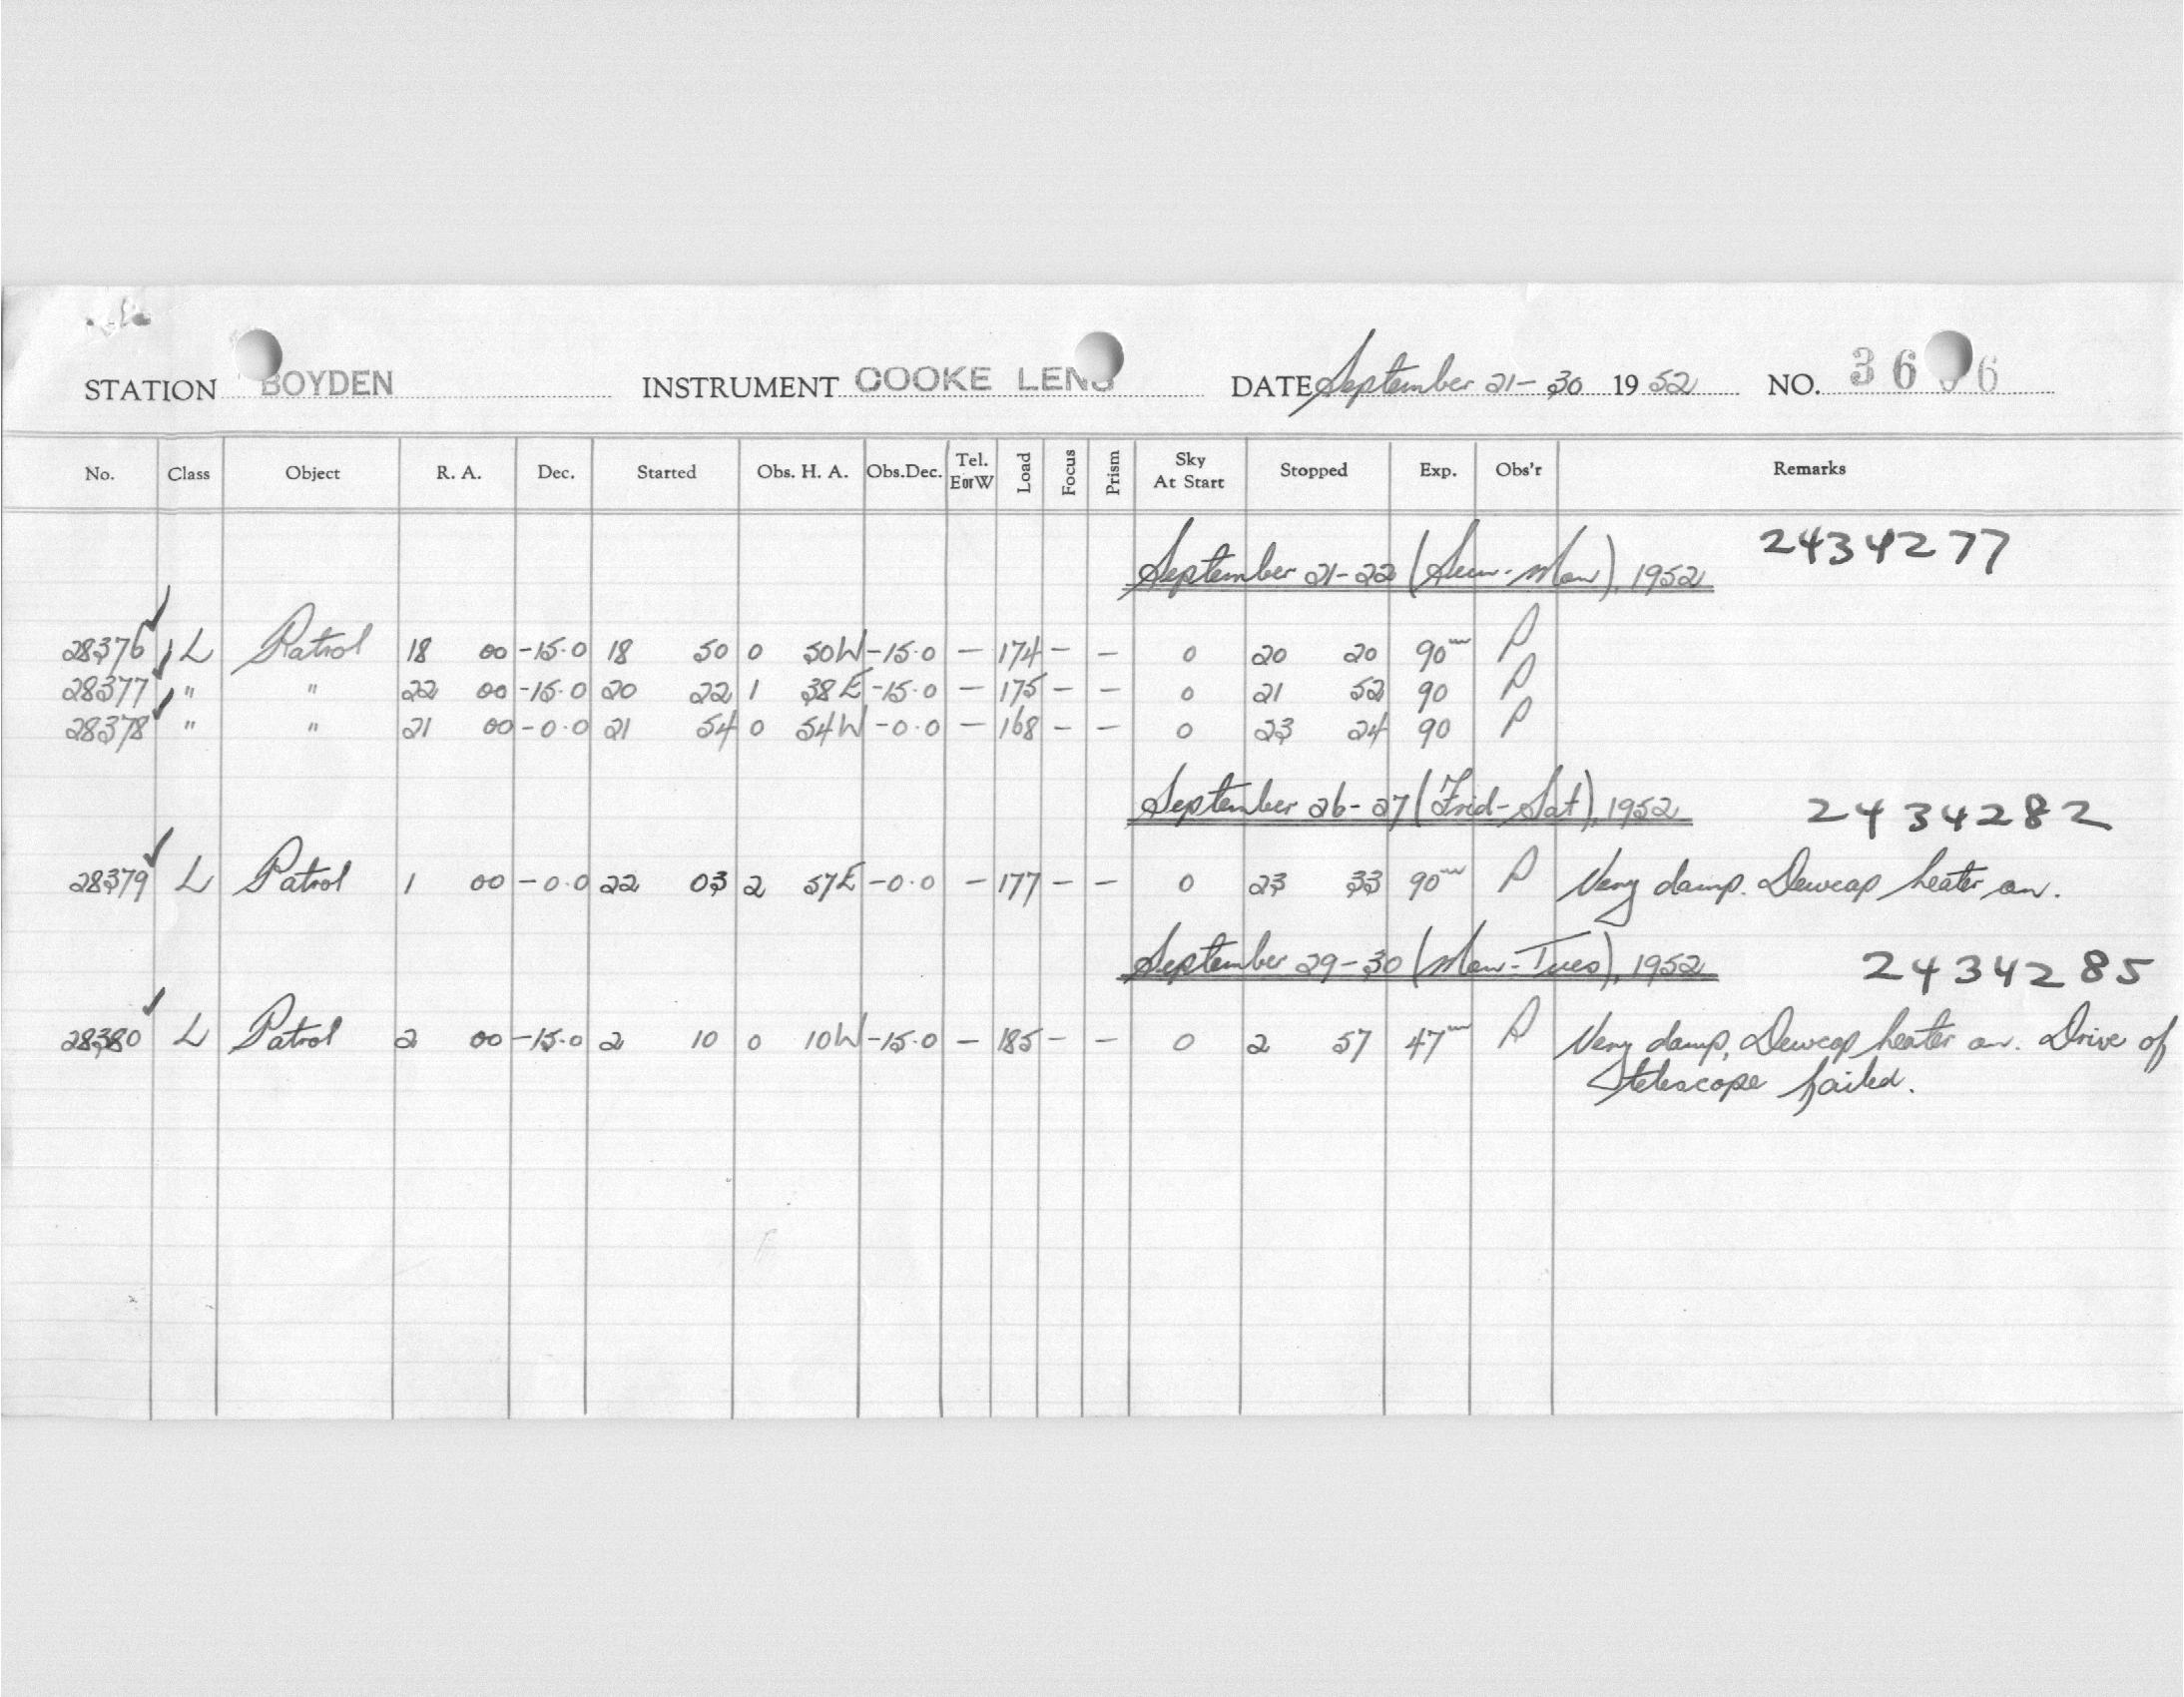 STATION BOYDEN INSTRUMENT COOKE LENS DATE September 21-30 1952 NO.
No. Class Object R. A. Dec. Started Obs. H. A. Obs.Dec. Tel. E or W Load Focus Prism Sky At Start Stopped Exp. Obs'r Remarks
September 21-22 (Sun-Mon), 1952 2434277
28376 L Patrol 18 00 -15.0 18 50 0 50W -15.0 - 174 - - 0 20 20 90m P
28377 " " 22 00 -15.0 20 22 1 38E -15.0 - 175 - - 0 21 52 90 P
28378 " " 21 00 -0.0 21 54 0 54W -0.0 - 168 - - 0 23 24 90 P
September 26-27 (Frid-Sat), 1952 2434282
28379 L Patrol 1 00 -0.0 22 03 2 57E -0.0 - 177 - - 0 23 33 90m P Very damp. Dewcap heater on.
September 29-30 (Mon-Tues), 1952 2434285
28380 L Patrol 2 00 -15.0 2 10 0 10W -15.0 - 185 - - 0 2 57 47m P Very damp, Dewcap heater on. Drive of
telescope failed.